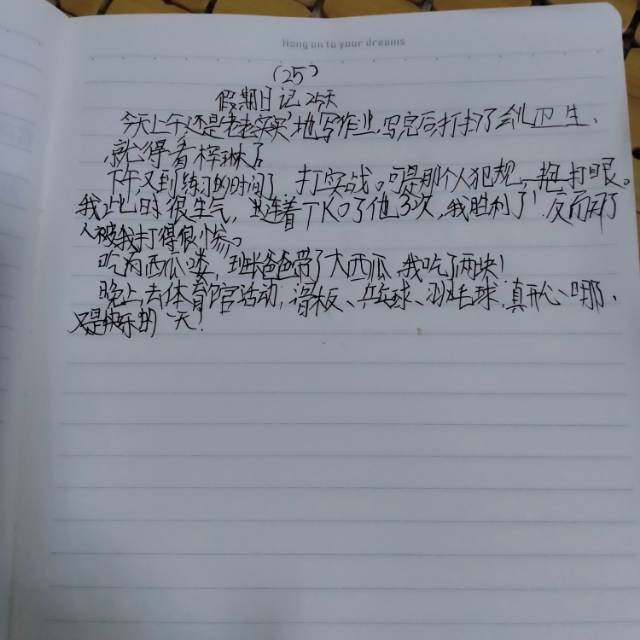 Hang on to your dreams
(25)
假期日记 25天
今天上午还是老老实实地写作业,写完后打扫了会儿卫生,
就得看梓琳了
下午又到练习的时间了,打实战。可是那个人犯规,抱打眼。
我此时很生气,连着TKO了他3次,我胜利了!反而那个
人被我打得很惨。
吃西瓜喽,爸爸带了大西瓜,我吃了两块!
晚上去体育馆活动,滑板、乒乓球、羽毛球,真开心哪,
又是快乐的一天!